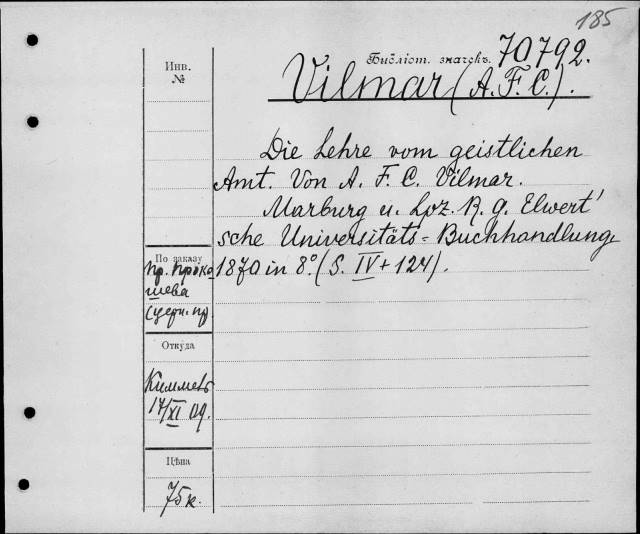 185
Библіот. значекъ. 70792.
Vilmar (A. F. C.).
Инв.
№
Die Lehre vom geistlichen
Amt. Von A. F. C. Vilmar.
Marburg u. Lpz. N. G. Elwert'
sche Universitäts-Buchhandlung
1870 in 8º. (S. IV + 124).
По заказу
пр. Проко-
шева
(церк. пр.)
Откуда
Киммель
17/XI 09.
Цѣна
75 к.